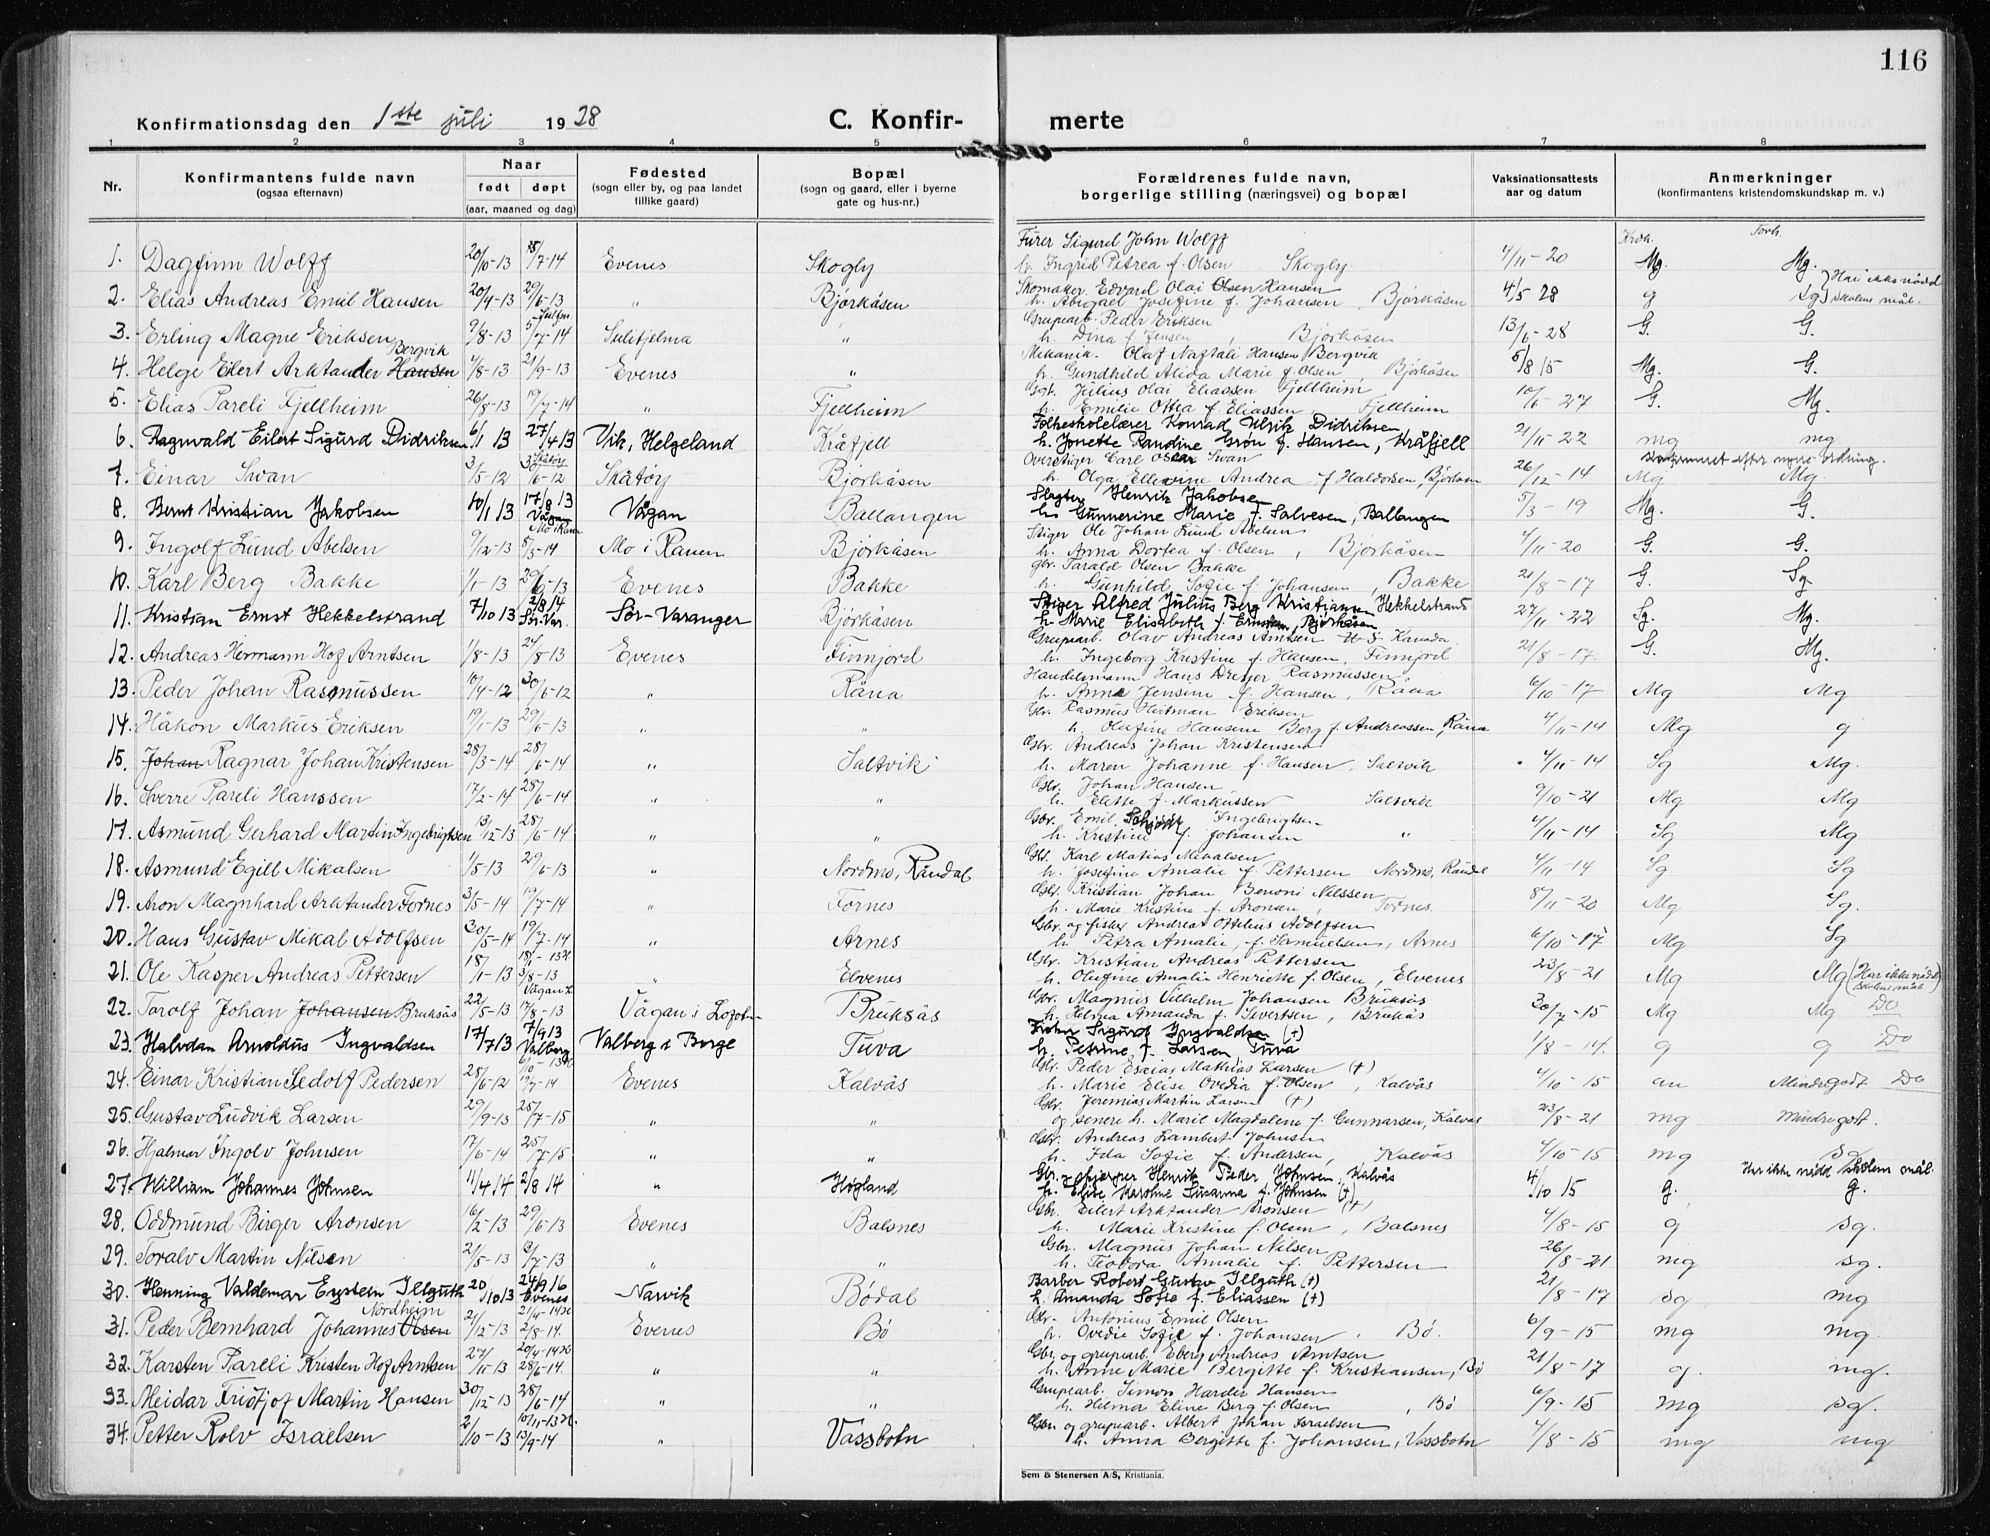 116
Konfirmationsdag den 1ste juli 1928 C. Konfir- merte
1 2 3 4 5 6 7 8
Nr. Konfirmantens fulde navn (ogsaa efternavn) Naar født døpt (aar, maaned og dag) Fødested (sogn eller by, og paa landet tillike gaard) Bopæl (sogn og gaard, eller i byerne gate og hus-nr.) Forældrenes fulde navn, borgerlige stilling (næringsvei) og bopæl Vaksinationsattests aar og datum Anmerkninger (konfirmantens kristendomskundskap m. v.)
1. Dagfinn Wolff 20/10-13 Evenes Skogly Furer Sigurd John Wolff
h. Ingrid Petrea f. Olsen Skogly 4/11-20 Mg. Mg.
2. Elias Andreas Emil Hansen 20/4-13 29/6-13 " Bjørkåsen Skomaker Edvard Olai Olsen Hansen
h. Abigael Josefine f. Johansen, Bjørkåsen 4/5 28 g Sg Har ikke nådd skolens mål.
3. Erling Magne Eriksen 9/8-13 5/7-14 Sulitjelma " Grupearb. Peder Eriksen
h. Dina f. Jensen, Bjørkåsen 13/6-28 G. G.
4. Helge Eilert Arktander Hansen Bergvik 4/8-13 21/9-13 Evenes " Mekanik. Olaf Naftali Hansen Bergvik
h. Gundhild Alida Marie f. Olsen, Bjørkåsen 5/8 15 Mg. G.
5. Elias Pareli Fjellheim 26/8-13 19/7-14 " Fjellheim Gbr. Julius Olai Eliassen Fjellheim
h. Emilie Ottea f. Eliassen, Fjellheim 10/6-27 G. Mg.
6. Ragnvald Eilert Sigurd Didriksen 6/1 13 27/4 13 Vik, Helgeland Kråfjell Folkeskolelærer Konrad Ulrik Didriksen
h. Jonette Randine Grøn f. Hansen, Kråfjell 21/11-22 mg mg
7. Einar Swan 3/5-12 30/6-12 Skåtøy Bjørkåsen Overstiger Carl Oscar Swan
h. Olga Ellevine Andrea f Haldorsen, Bjørkåsen 26/12-14 Mg Mg.
8. Bernt Kristian Jakobsen 10/1 13 17/8 13 Vågan Vågan Ballangen Slagter Henrik Jakobsen
h. Gunnerine Marie f. Salvesen, Ballangen 5/3-19 Mg. G.
9. Ingolf Lund Abelsen 9/12-13 8/3-14 Mo i Rana Mo i Ranen Bjørkåsen Stiger Ole Johan Lund Abelsen
h. Anna Dortea f. Olsen, Bjørkåsen 4/11-20 G. G.
10. Karl Berg Bakke 1/1-13 29/6-13 Evenes Bakke gbr. Tarald Olsen Bakke
h. Gunhild Sofie f. Johansen, Bakke 21/8-17 G. Sg.
11. Kristian Ernst Hekkelstrand 7/10 13 2/8 14 Sør-Var. Sør-Varanger Bjørkåsen Stiger Alfred Julius Berg Kristiansen Hekkelstrand
h. Marie Elisabeth f. Ernstsen, Bjørkåsen 27/11-22 Sg. Mg.
12. Andreas Hermann Hof Arntsen 1/8-13 24/8-13 Evenes Finnjord Grupearb. Olav Andreas Arntsen U.S. Kanada
h. Ingeborg Kristine f. Hansen, Finnjord 21/8-17 G. Mg.
13. Peder Johan Rasmussen 10/4-12 30/6-12 " Råna Handelsmann Hans Dreyer Rasmussen
h. Anna Jensine f. Hansen, Råna 6/10-17 Mg Mg
14. Håkon Markus Eriksen 19/1-13 29/6-13 " " Gbr. Rasmus Heitman Eriksen
h. Olufine Hansine Berg f. Andreassen, Råna 4/11-14 Mg g
15. Johan Ragnar Johan Kristensen 28/3-14 28/6-14 " Saltvik Gbr. Andreas Johan Kristensen
h. Maren Johanne f. Hansen, Saltvik 4/11-14 Sg Mg.
16. Sverre Pareli Hanssen 17/2-14 28/6-14 " " Gbr. Johan Hansen
h. Elette f. Markussen Saltvik 9/10-21 Mg Mg
17. Asmund Gerhard Martin Ingebrigtsen 13/12-13 28/6-14 " " Gbr. Emil Schjøth Ingebrigtsen
h. Kristine f. Johansen " 4/11-14 Sg Mg
18. Asmund Egill Mikalsen 1/5-13 29/6-13 " Nordmo, Råndal Gbr. Karl Matias Mikalsen
h. Josefine Amalie f. Pettersen Nordmo, Råndal 4/11-14 Sg. Sg
19. Aron Magnhard Arktander Fornes 31/5-14 19/7-14 " Fornes Gbr. Kristian Johan Benoni Nilssen
h. Marie Kristine f. Aronsen, Fornes 8/11-20 Mg Sg.
20. Hans Gustav Mikal Adolfsen 30/5-14 19/7-14 " Arnes Gbr. og fisker Andreas Ottelius Adolfsen
h. Petra Amalie, f. Samuelsen, Arnes 6/10-17 Mg Sg
21. Ole Kasper Andreas Pettersen 18/1-13 3/8-13 " Elvenes Gbr. Kristian Andreas Pettersen
h. Olufine Amalie Henriette f. Olsen, Elvenes 23/8-21 Mg Mg (Har ikke nådd skolens mål)
22. Torolf Johan Johansen Bruksås 22/5-13 17/8-13 Vågan i Lofoten Bruksås Gbr. Magnus Vilhelm Johansen Bruksås
h. Helma Amanda f. Sivertsen, Bruksås 30/7-15 Mg Mg Do
23. Halvdan Arnoldus Ingvaldsen 17/7 13 7/9 13 Valberg Valberg i Borge Tuva Fisker Sigurd Ingvaldsen (+)
h. Petrine f. Larsen, Tuva 1/8-14. g g Do
24. Einar Kristian Sedolf Pedersen 28/6-12 19/7-14 Evenes Kalvås Gbr. Peder Esaias Mathias Larsen (+)
h. Marie Elise Ovedia f. Olsen, Kalvås 4/10-15 an Mindregodt Do
25. Gustav Ludvik Larsen 29/9-13 25/7-15 " " Gbr. Jeremias Martin Larsen (+)
og senere h. Marie Magdalene f. Gunnarsen, Kalvås 23/8-21 mg mindregodt.
26. Hjalmar Ingolv Johnsen 17/6-14 25/7-15 " " Gbr. Andreas Lambert Johnsen
h. Ida Sofie f. Andersen, Kalvås 4/10-15 mg Sg
27. William Johannes Johnsen 11/4 14 2/8 14 " Høgland Gbr. og skjerper Henrik Peder Johnsen, Kalvås
h. Elise Karoline Susanna f. Johnsen (+) 4/10 15 g. Har ikke nådd skolens mål. g.
28. Oddmund Birger Aronsen 16/2-13 29/6-13 Evenes Balsnes Gbr. Eilert Arktander Aronsen (+)
h. Marie Kristine f. Olsen, Balsnes 4/8-15 g sg.
29. Toralv Martin Nilsen 2/5-13 13/7-13 " " Gbr. Magnus Johan Nilsen
h. Teodora Amalie f. Pettersen 26/8-21 mg sg.
30. Henning Valdemar Eystein Illguth 20/10 13 24/9 16 Evenes Narvik Bødal Barber Robert Gustav Illguth (+)
h. Amanda Sofie f. Eliassen (+) 21/8-17 sg mg
31. Peder Bernhard Johannes Olsen Nordheim 2/12-13 2/8-14. Evenes Bø Gbr. Antonius Emil Olsen
h. Ovedie Sofie f. Johansen, Bø. 6/9-15 mg mg.
32. Karsten Pareli Kristen Hof Arntsen 27/11-13 28/6-14. " " Gbr. og grupearb. Eberg Andreas Arntsen
h. Anne Marie Bergitte f. Kristiansen, Bø 21/8-17 g. mg.
33. Meidar Fritjof Martin Hansen 30/12-13 28/6-14 " " Grupearb. Simon Harder Hansen
h. Helma Eline Berg f. Olsen, Bø 6/9-15 mg sg.
34. Petter Rolv Israelsen 2/10-13 13/9-14 " Vassbotn Gbr. og grupearb. Albert Johan Israelsen
h. Anna Bergitte f. Johansen, Vassbotn 4/8-15 mg mg
Sem & Stenersen A/S, Kristiania.